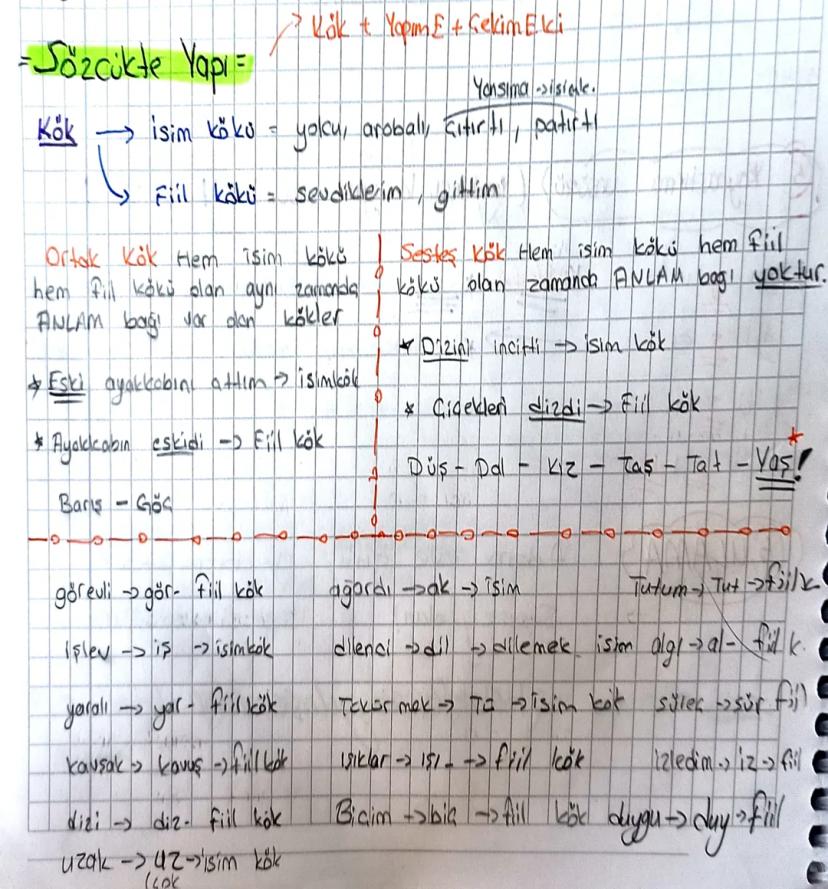 Kök + YapımE + Çekim Eki
= Sözcükte Yapı =
Yansıma → isimk.
Kök → isim kökü = yolcu, arabalı, çıtırtı, patırtı
→ Fiil kökü = sevdiklerim, gittim
Ortak Kök Hem isim kökü
hem fiil kökü olan aynı zamanda
ANLAM bağı var olan kökler
* Eski ayakkabını attım → isimkök
* Ayakkabın eskidi → Fiil kök
Barış - Göç
Sesteş Kök Hem isim kökü hem fiil
kökü olan zamanda ANLAM bağı yoktur.
* Dizini incitti → isim kök
* Çiçekleri dizdi → Fiil kök
Düş - Dal - Kız - Taş - Tat - Yaş!
görevli → gör- fiil kök
işlev → iş → isimkök
yaralı → yar- fiil kök
kavşak → kavuş → fiil kök
dizi → diz- fiil kök
uzak → uz → isim kök
çok
ağardı → ak → isim
dilenci → dil → dilemek isim
Tekərmek → Te → isim kök
ışıklar → ışı- → fiil kök
Biçim → biç → fiil kök
Tutum → Tut → fiil k
algı → al- fiil k.
süreç → sür fiil
izledim → iz → fiil
duygu → duy → fiil